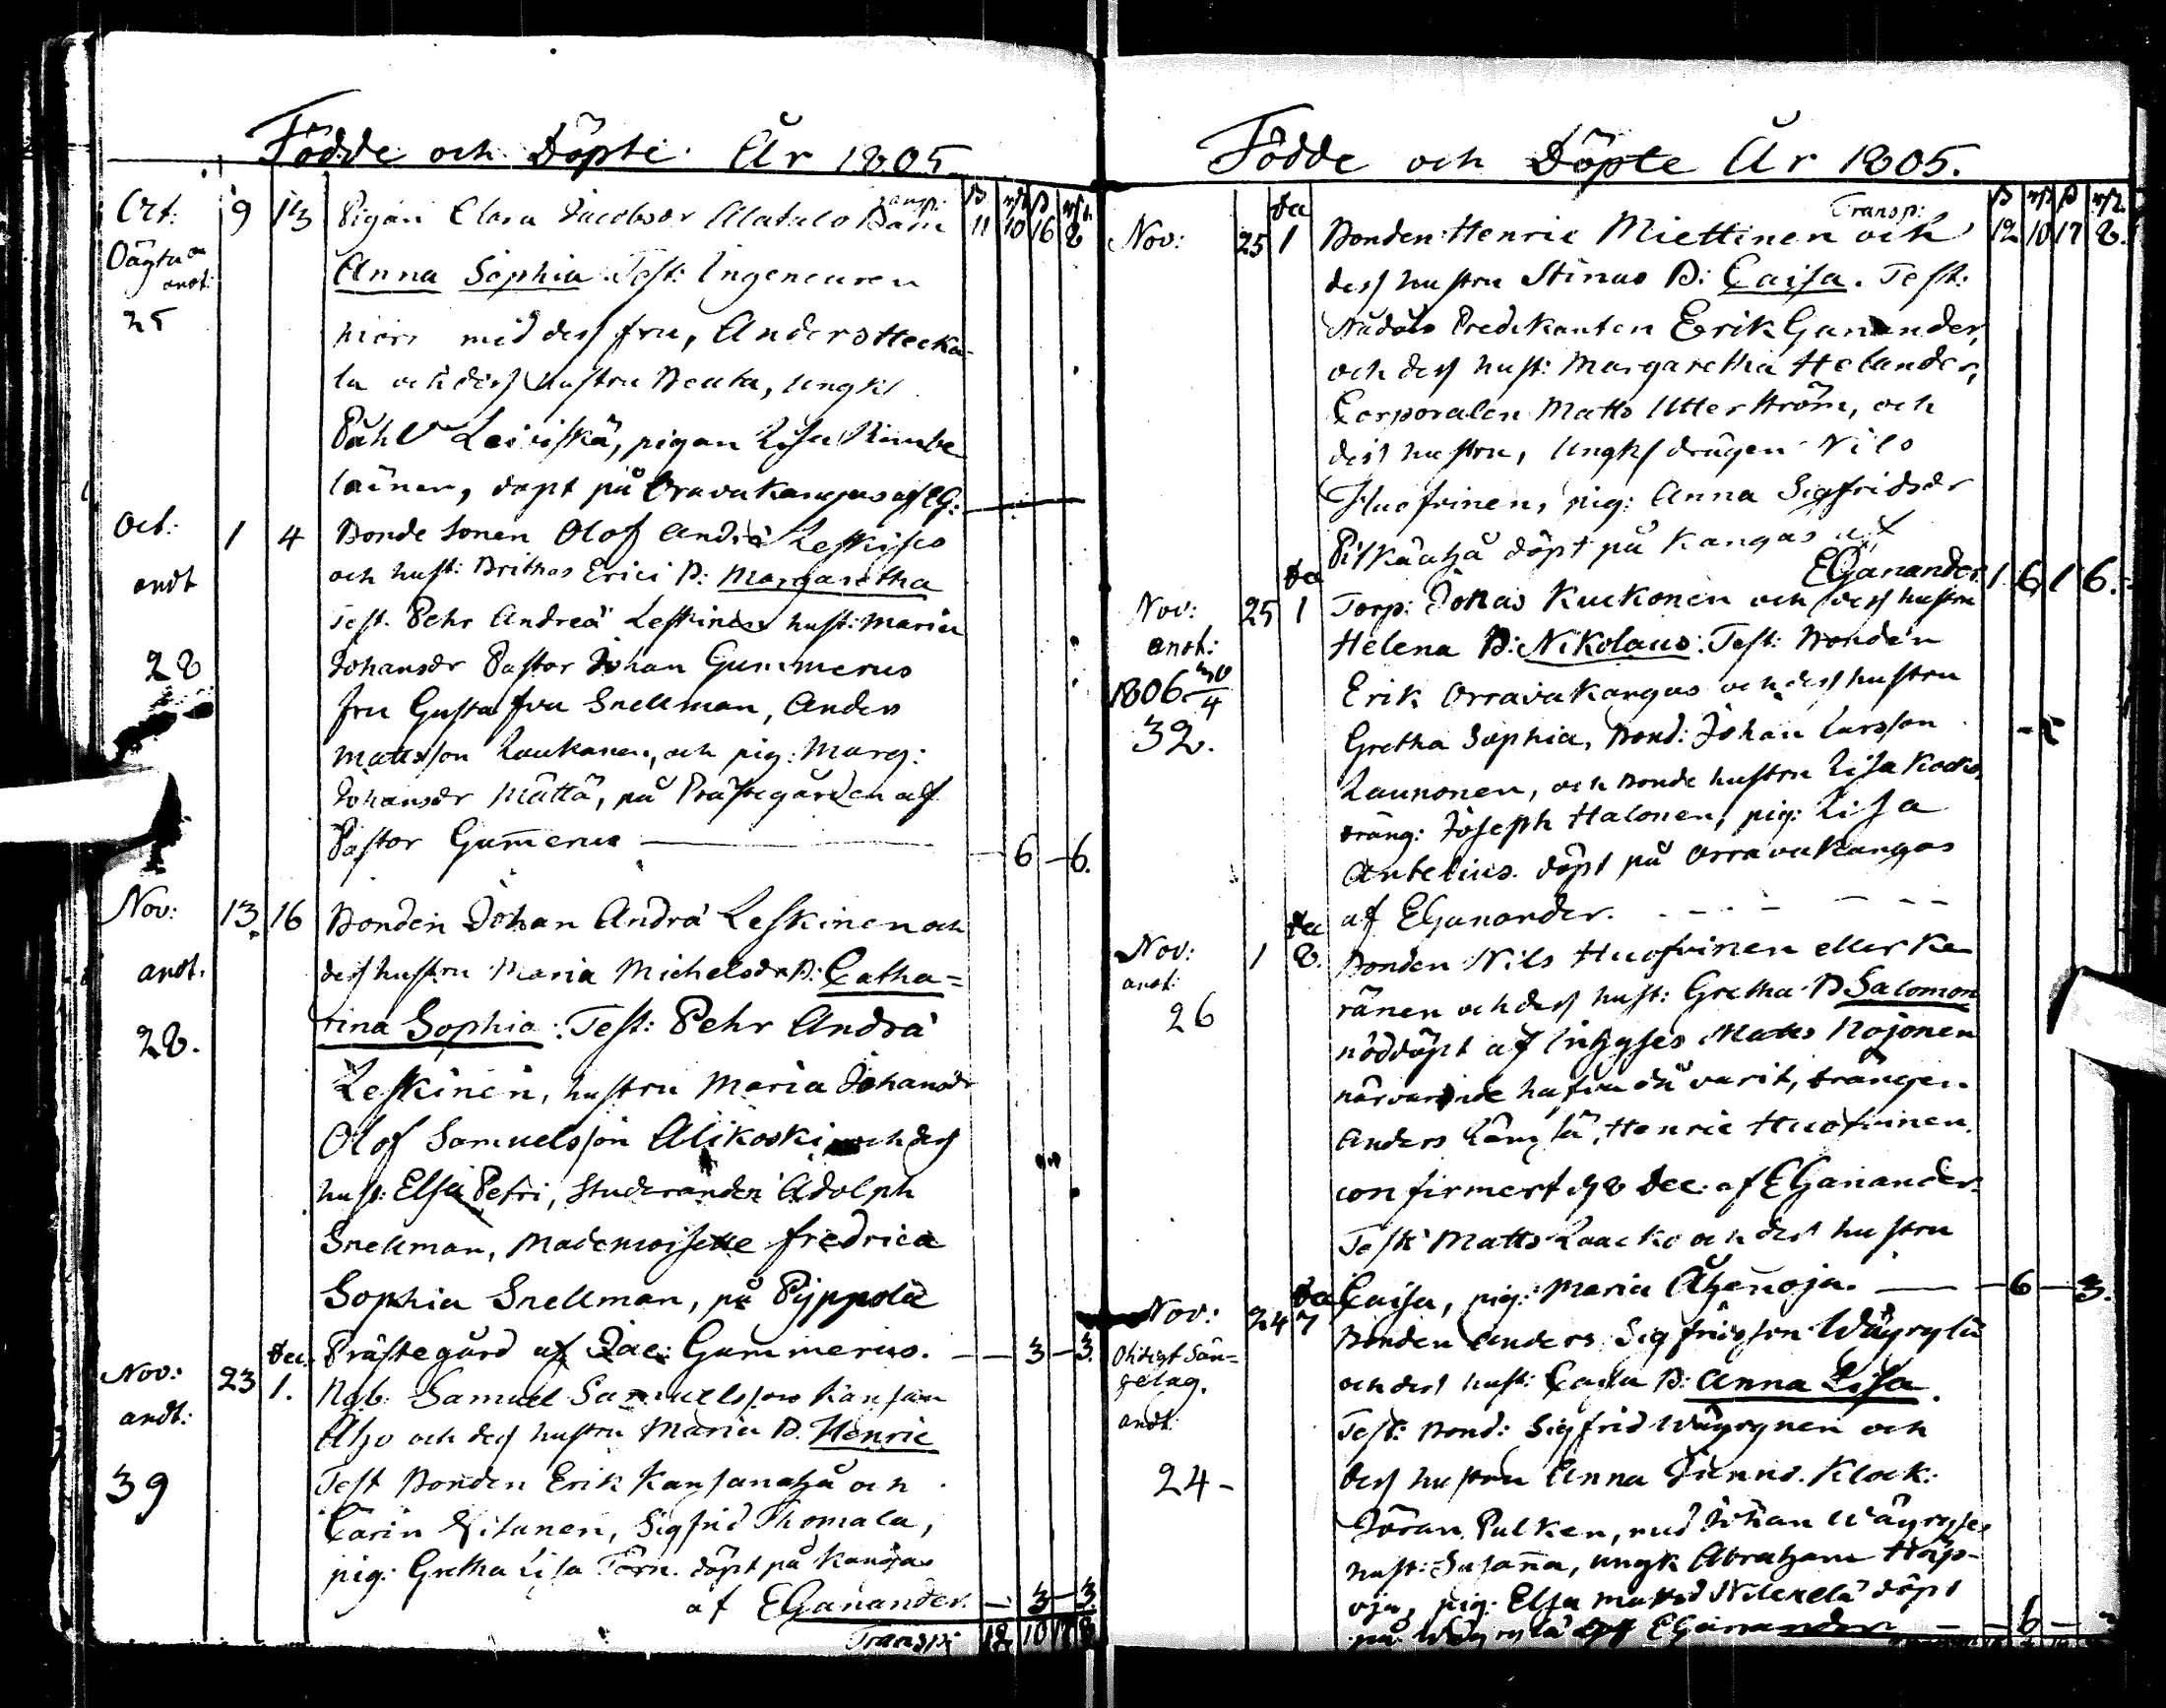 Födde och Döpte År 1805.
Oct: 9 13 Pigan Clara Jacobsdr Alatalo Barn 11 10 16 8
Oägta
andt:
25
Anna Sophia. Test: Ingeneuren
med dess fru, Anders Heeka-
la och dess hustru Beata, ungk
Påhl Leiviskä, pigan Lisa
lainen, döpt på Oravakangas af EG.
Oct: 1 4 Bonde sonen Olof Andreæ Leskises
andt
28
och hust: Brithas Erici B: Margaretha
Test. Pehr Andreæ Leskinen hust: Maria
Johansdr Pastor Johan Gummerus
fru Gustafva Snellman, Anders
Mattsson Laukanen, och pig: Marg:
Johansdr Mättä, på Prästegården af
Pastor Gum̄erus — 6 — 6.
Nov: 13. 16 Bonden Johan Andræ Leskinen och
andt.
28.
dess hustru Maria Michelsdr B: Catha=
rina Sophia: Test: Pehr Andræ
Leskinen, hustru Maria Johansdr
Olof Samuelsson Alikoski och dess
hust: Elsa Petri, Studeranden Adolph
Snellman, Mademoiselle Fredrica
Sophia Snellman, på Pyppola
Prästegård af Jac: Gummerus. — 3 — 3.
Nov: 23 Dec. 1. Nyb. Samuel Samuelsson Kansan
andt:
39
Aho och dess hustru Maria B. Henric
Test Bonden Erik Kansanaho och
Carin, Sigfrid Thomala,
pig: Gretha Lisa Törn. döpt på Kangas
af EGanander. — 3 — 3.
Transp: 12 10 17 8
Födde och Döpte År 1805.
Transp:
Nov: 25 Dec 1 Bonden Henric Miettinen och 12 10 17 8.
dess hustru Stinas B: Caisa. Test:
Nådårs Predikanten Erik Ganander,
och dess hust: Margaretha Helander,
Corporalen Matts Utterström, och
dess hustru, ungk drängen Nils
Huofvinen, pig: Anna Sigfridsdr
Pitkäaho döpt på Kangas af
EGanander. 1 6 1 6.
Nov: 25 Dec 1 Torp: Johas Kuckonen och dess hustru
andt:
1806
32.
Helena B: Nikolaus: Test: Bonden
Erik Orravakangas och dess hustru
Gretha Sophia, Bond: Johan Larsson
Launonen, och Bonde hustru Lisa
dräng: Joseph Halonen, pig: Lisa
Antelius. döpt på Orravakangas
af EGanander.
Nov: 1 Dec 8. Bonden Nils Huofvinen eller Ke
andt:
26
ränen och dess hust: Gretha B Salomon
nöddöpt af Inhyses Matts Nojonen
närvarande hafva då varit, drängen
Anders, Henric Huofvinen.
confirmert d 8 Dec. af EGanander.
Test: Matts Laacko och dess hustru
Caisa, pig: Maria Ahenoja. — 6 — 3.
Nov: 24 Dec 7 Bonden Anders Sigfridsson Wäyrylä
Otidigt Sän=
gelag.
andt:
24-
och dess hust: Caisa B: Anna Lisa.
Test: Bond: Sigfrid Wäyrynen och
dess hustru Anna. Klock:
Jöran Pulken, Johan Wäyryses
hust: Susan̄a, ungk Abraham Hap-
oja, pig: Elsa döpt
på Wäyrylä af EGanander — 6 —